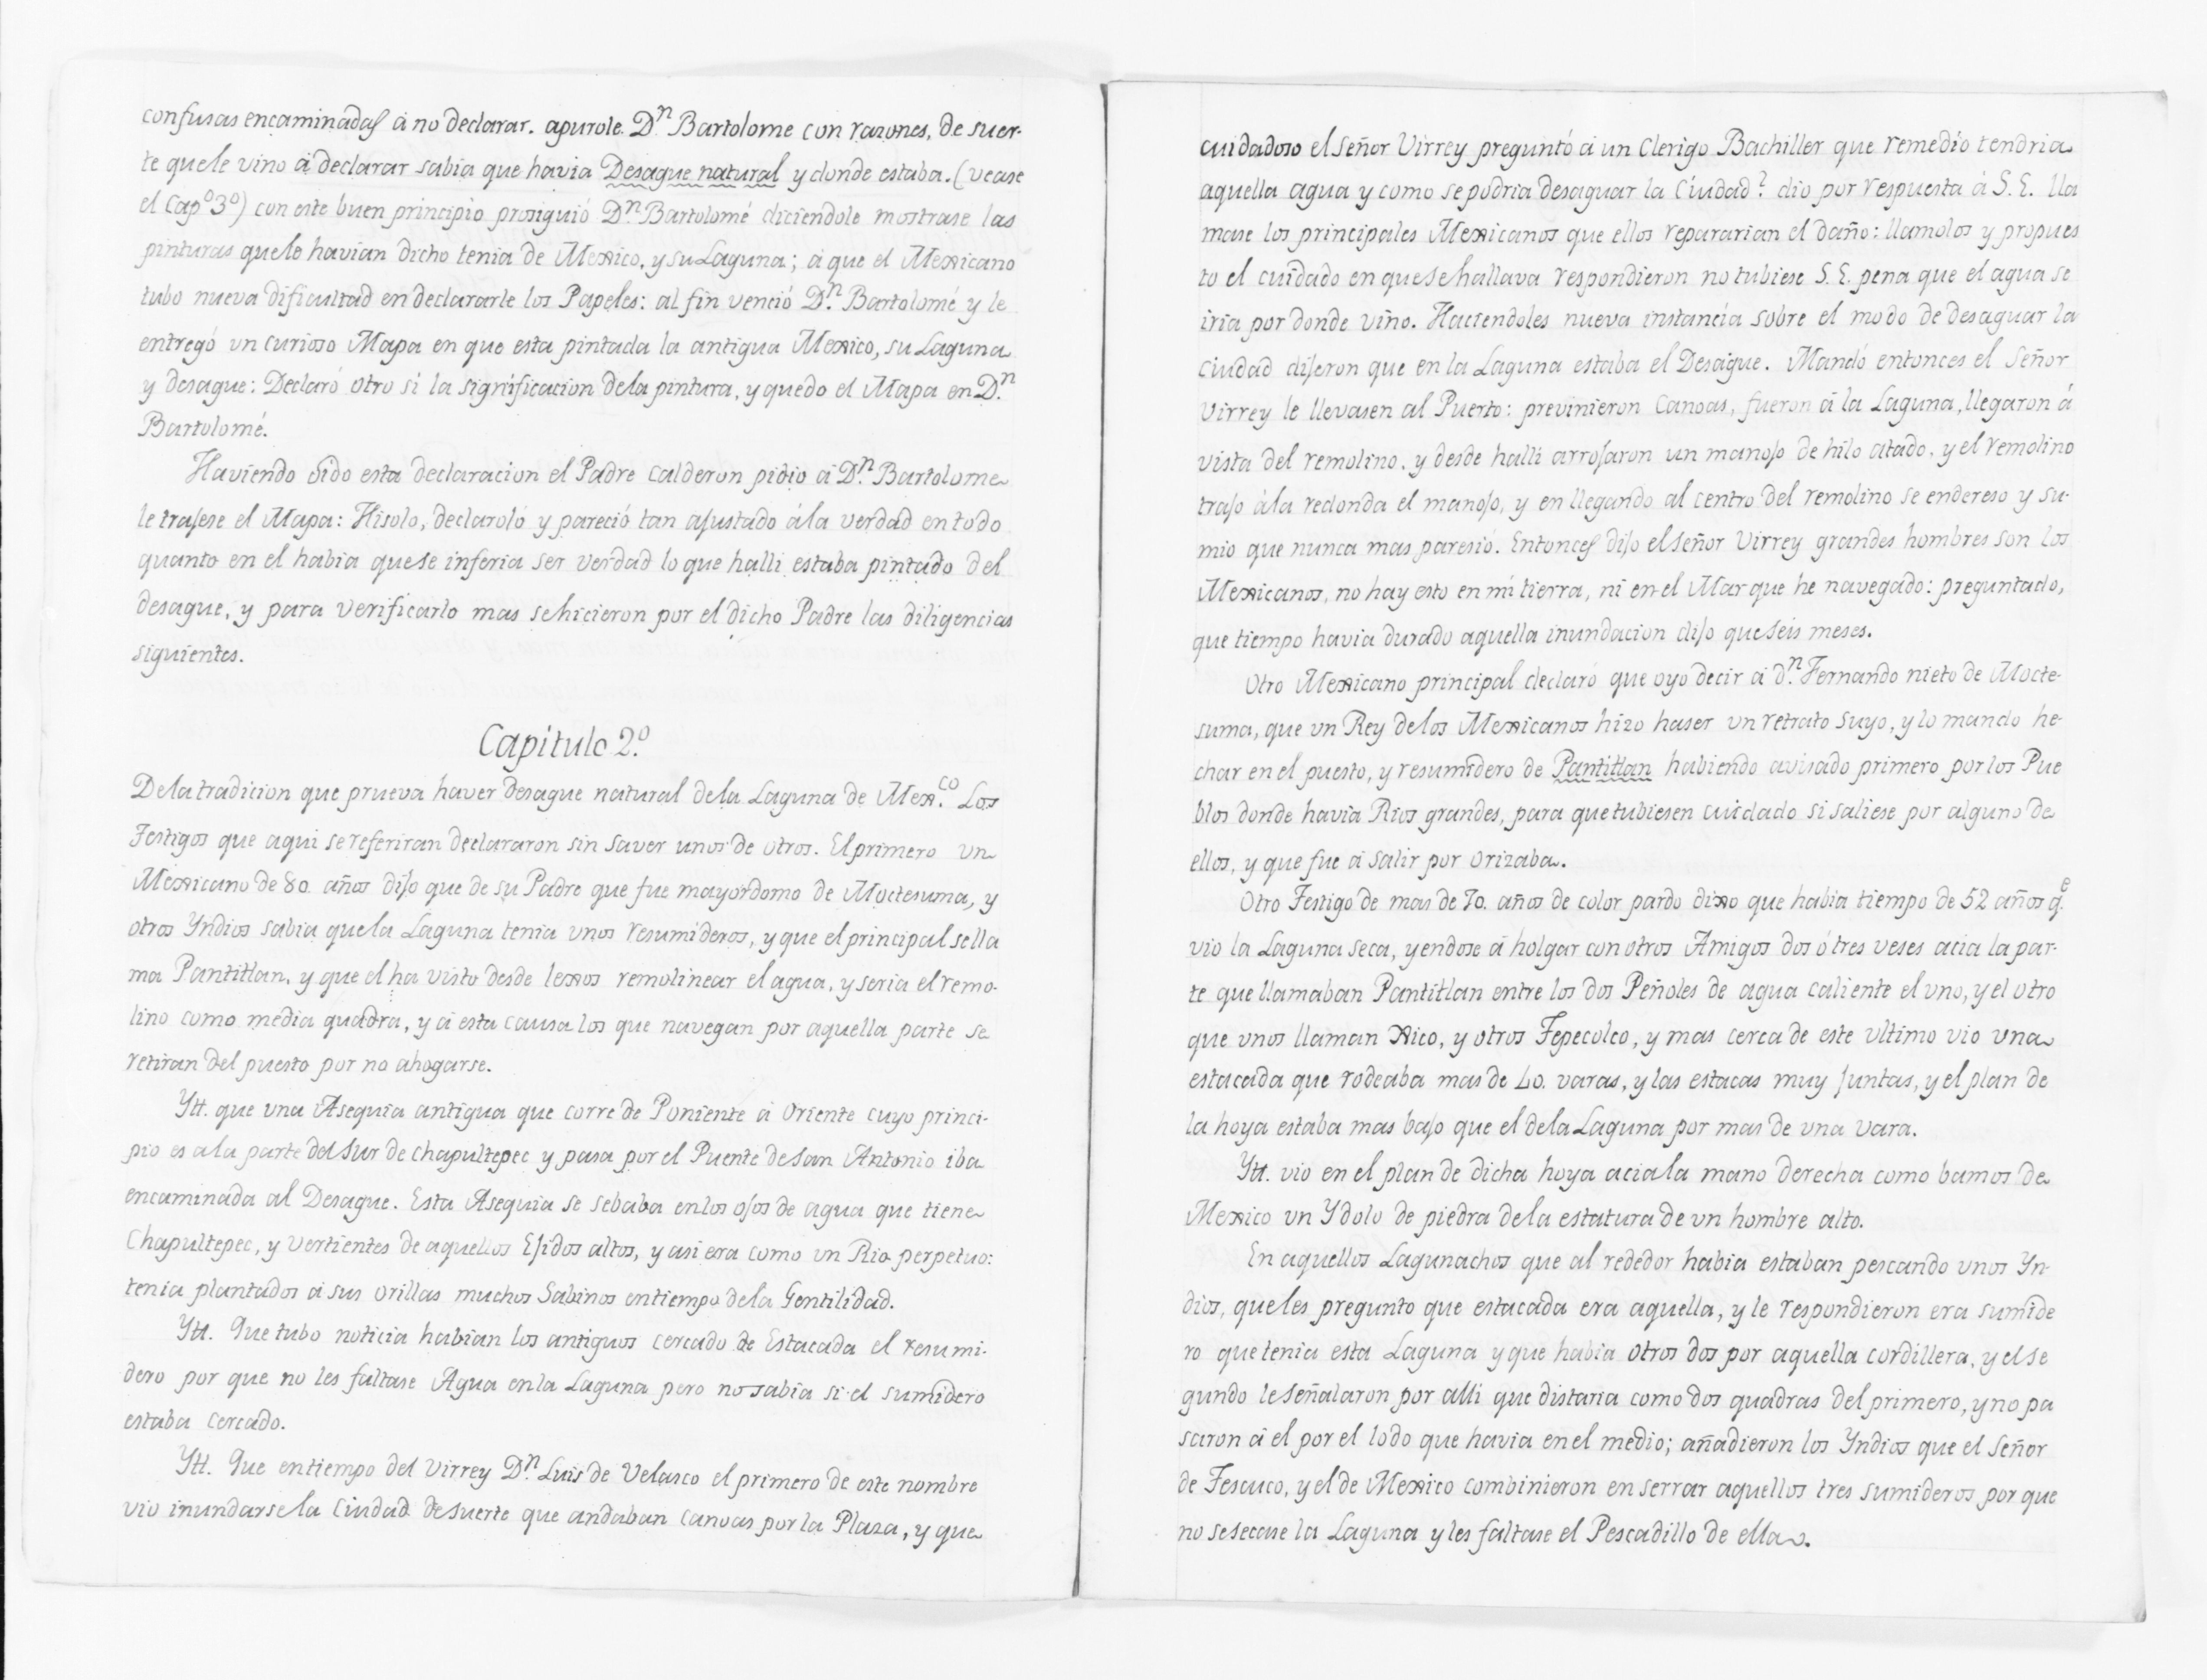 confusas encaminadas á no declarar. apurole Dn. Bartolome con razones, de suer-
te que le vino á declarar sabia que havia Desague natural y donde estaba. (vease
el Capo 3o) con este buen principio prosiguió Dn. Bartolomé diciendole mostrase las
pinturas que le havian dicho tenia de Mexico, y su Laguna; á que el Mexicano
tubo nueva dificultad en declararle los Papeles: al fin venció Dn. Bartolomé y le
entregó vn curioso Mapa en que esta pintada la antigua Mexico, su Laguna
y desague: Declaró otro sí la significacion de la pintura, y quedo el Mapa en Dn.
Bartolomé.
Haviendo oido esta declaracion el Padre Calderon pidio á Dn. Bartolome
le trajese el Mapa: Hisolo, declaroló y pareció tan ajustado á la verdad en todo
quanto en el habia que se inferia ser verdad lo que halli estaba pintado del
desague, y para verificarlo mas se hicieron por el dicho Padre las diligencias
siguientes.
Capitulo 2.o
De la tradicion que prueva haver desague natural de la Laguna de Mex.co Los
Testigos que aqui se referiran declararon sin saver unos de otros. El primero vn
Mexicano de 80. años dijo que de su Padre que fue mayordomo de Moctesuma, y
otros Yndios sabia que la Laguna tenia vnos resumideros, y que el principal se lla
ma Pantitlan, y que el ha visto desde lexos remolinear el agua, y seria el remo-
lino como media quadra, y á esta causa los que navegan por aquella parte se
retiran del puesto por no ahogarse.
Ytt. que vna Asequia antigua que corre de Poniente á Oriente cuyo princi-
pio es a la parte del Sur de Chapultepec y pasa por el Puente de San Antonio iba
encaminada al Desague. Esta Asequia se sebaba en los ojos de agua que tiene
Chapultepec, y vertientes de aquellos Ejidos altos, y asi era como vn Rio perpetuo:
tenia plantados á sus orillas muchos Sabinos en tiempo de la Gentilidad.
Ytt. Que tubo noticia habian los antiguos cercado de Estacada el resumi-
dero por que no les faltase Agua en la Laguna pero no sabia si el sumidero
estaba cercado.
Ytt. Que en tiempo del Virrey Dn. Luis de Velasco el primero de este nombre
vio inundarse la Ciudad de suerte que andaban canoas por la Plaza, y que
cuidadoso el Señor Virrey preguntó á un Clerigo Bachiller que remedio tendria
aquella agua y como se podria desaguar la Ciudad? dio por respuesta á S. E. lla
mase los principales Mexicanos que ellos repararian el daño: llamolos y propues
to el cuidado en que se hallava respondieron no tubiese S. E. pena que el agua se
iria por donde vino. Haciendoles nueva instancia sobre el modo de desaguar la
Ciudad dijeron que en la Laguna estaba el Desague. Mandó entonces el Señor
Virrey le llevasen al Puerto: previnieron Canoas, fueron á la Laguna, llegaron á
vista del remolino, y desde halli arrojaron un manojo de hilo atado, y el remolino
trajo á la redonda el manojo, y en llegando al centro del remolino se endereso y su-
mio que nunca mas paresió. Entonces dijo el Señor Virrey grandes hombres son los
Mexicanos, no hay esto en mi tierra, ni en el Mar que he navegado: preguntado,
que tiempo havia durado aquella inundacion dijo que seis meses.
Otro Mexicano principal declaró que oyo decir á dn. Fernando nieto de Mocte-
suma, que vn Rey de los Mexicanos hizo haser vn retrato suyo, y lo mando he-
char en el puesto, y resumidero de Pantitlan habiendo avisado primero por los Pue
blos donde havia Rios grandes, para que tubiesen cuidado si saliese por alguno de
ellos, y que fue á salir por Orizaba.
Otro Testigo de mas de 70. años de color pardo dixo que habia tiempo de 52 años q.e
vio la Laguna seca, yendose á holgar con otros Amigos dos ó tres veses acia la par-
te que llamaban Pantitlan entre los dos Peñoles de agua caliente el vno, y el otro
que vnos llaman Xico, y otros Tepecolco, y mas cerca de este ultimo vio vna
estacada que rodeaba mas de 40. varas, y las estacas muy juntas, y el plan de
la hoya estaba mas bajo que el de la Laguna por mas de vna vara.
Ytt. vio en el plan de dicha hoya acia la mano derecha como bamos de
Mexico vn Ydolo de piedra de la estatura de vn hombre alto.
En aquellos Lagunachos que al rededor habia estaban pescando vnos Yn-
dios, que les pregunto que estacada era aquella, y le respondieron era sumide
ro que tenia esta Laguna y que habia otros dos por aquella cordillera, y el se
gundo le señalaron por alli que distaria como dos quadras del primero, y no pa
saron á el por el lodo que havia en el medio; añadieron los Yndios que el Señor
de Tescuco, y el de Mexico combinieron en serrar aquellos tres sumideros por que
no se secase la Laguna y les faltase el Pescadillo de ella.